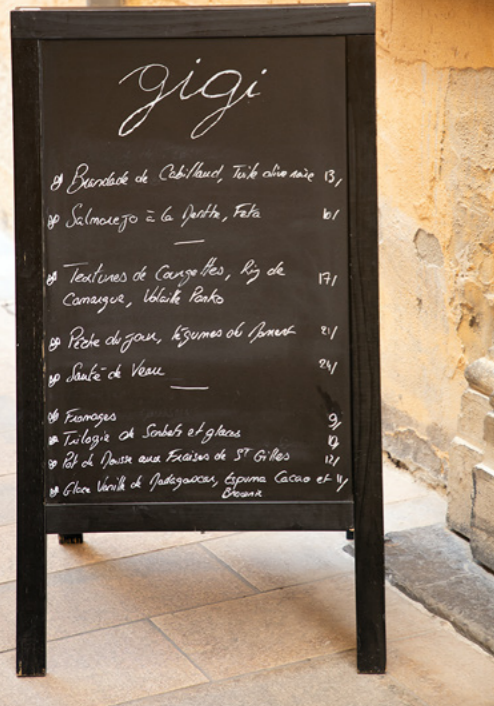 gigi
Brandade de Cabillaud, Tuile olive noire 13/
Salmorejo à la Menthe, Feta 10/
Textures de Courgettes, Riz de 17/
Camargue, Volaille Panko
Pêche du jour, légumes du Moment 21/
Sauté de Veau 24/
Fromages 9/
Trilogie de Sorbets et glaces
Pot de Mousse aux Fraises de ST Gilles 12/
Glace Vanille de Madagascar, Espuma Cacao et 11/
Brownie